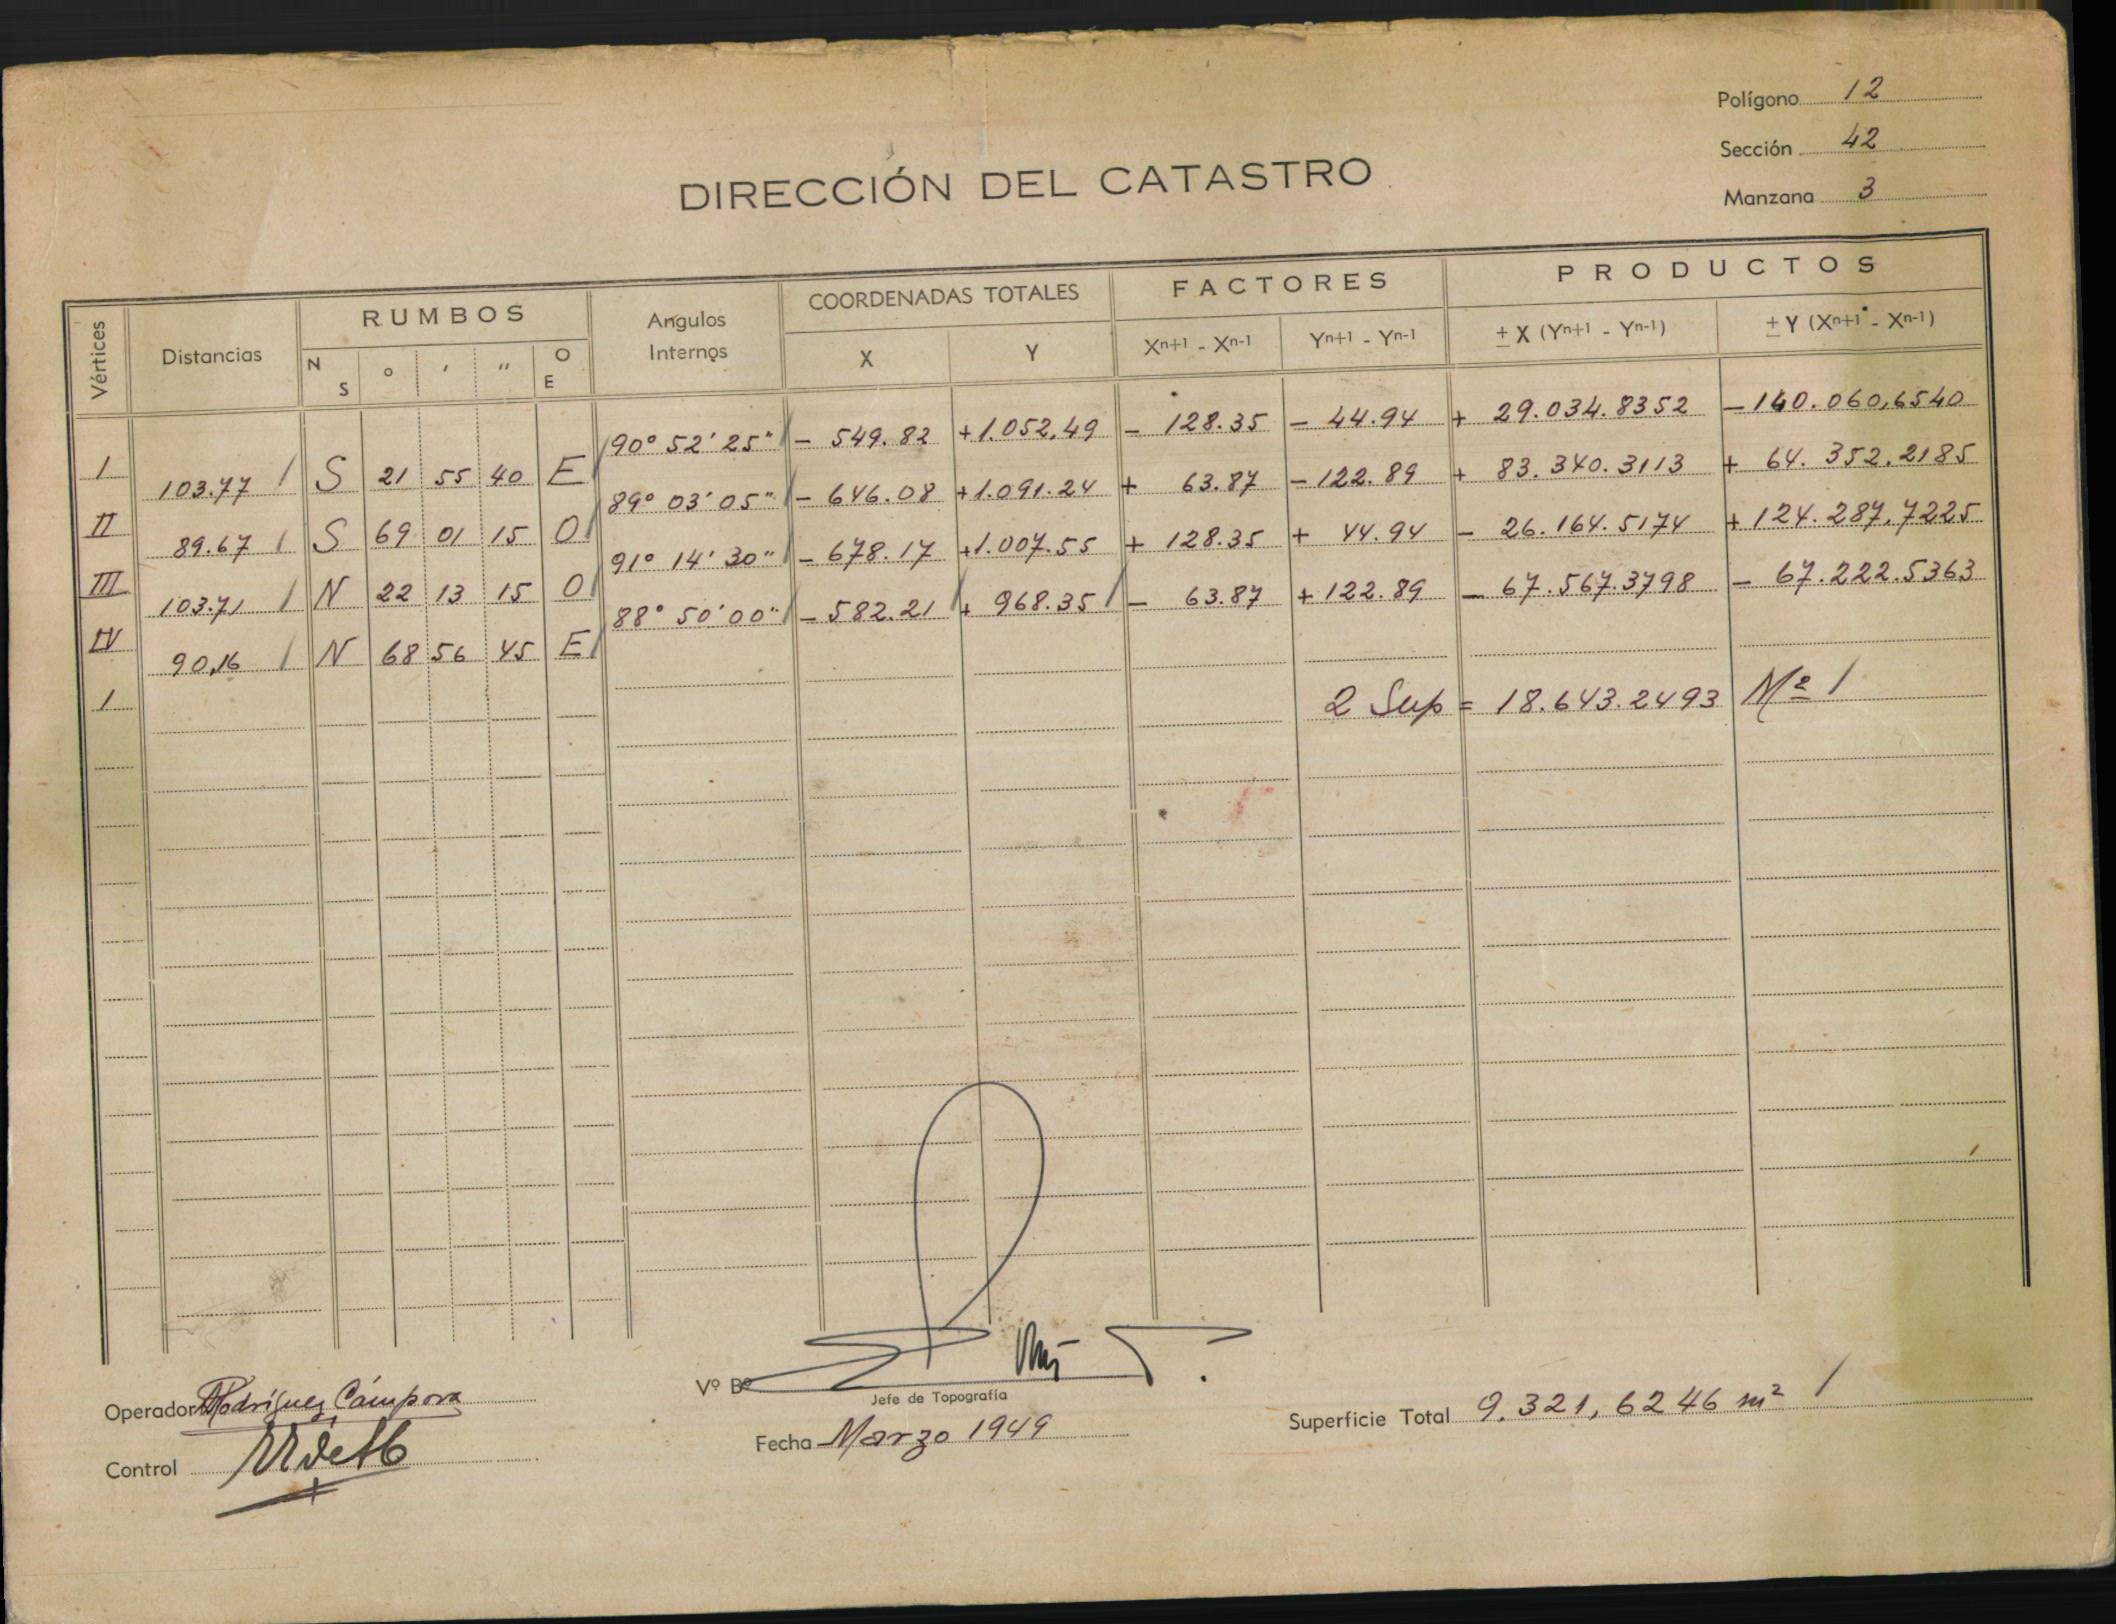 Polígono 12
Sección 42
Manzana 3
DIRECCIÓN DEL CATASTRO
Vértices Distancias RUMBOS Angulos Internos COORDENADAS TOTALES FACTORES PRODUCTOS
N S ° ' " O E X Y Xn+1 - Xn-1 Yn+1 - Yn-1 ± X (Yn+1 - Yn-1) ± Y (Xn+1 - Xn-1)
90° 52' 25" - 549.82 +1.052,49 - 128.35 - 44.94 + 29.034.8352 -140.060,6540
I 103.77 S 21 55 40 E
89° 03' 05" - 646.08 +1.091.24 + 63.87 -122.89 + 83.340.3113 + 64.352.2185
II 89.67 S 69 01 15 O
91° 14' 30" - 678.17 +1.007.55 + 128.35 + 44.94 - 26.164.5174 +124.287,7225
III 103.71 N 22 13 15 O
88° 50' 00" - 582.21 + 968.35 - 63.87 + 122.89 - 67.567.3798 - 67.222.5363
IV 90,16 N 68 56 45 E
I
2 Sup = 18.643.2493 M2
Operador Rodríguez Cámpora
Control
Vº Bº
Jefe de Topografía
Fecha Marzo 1949
Superficie Total 9.321,6246 m²